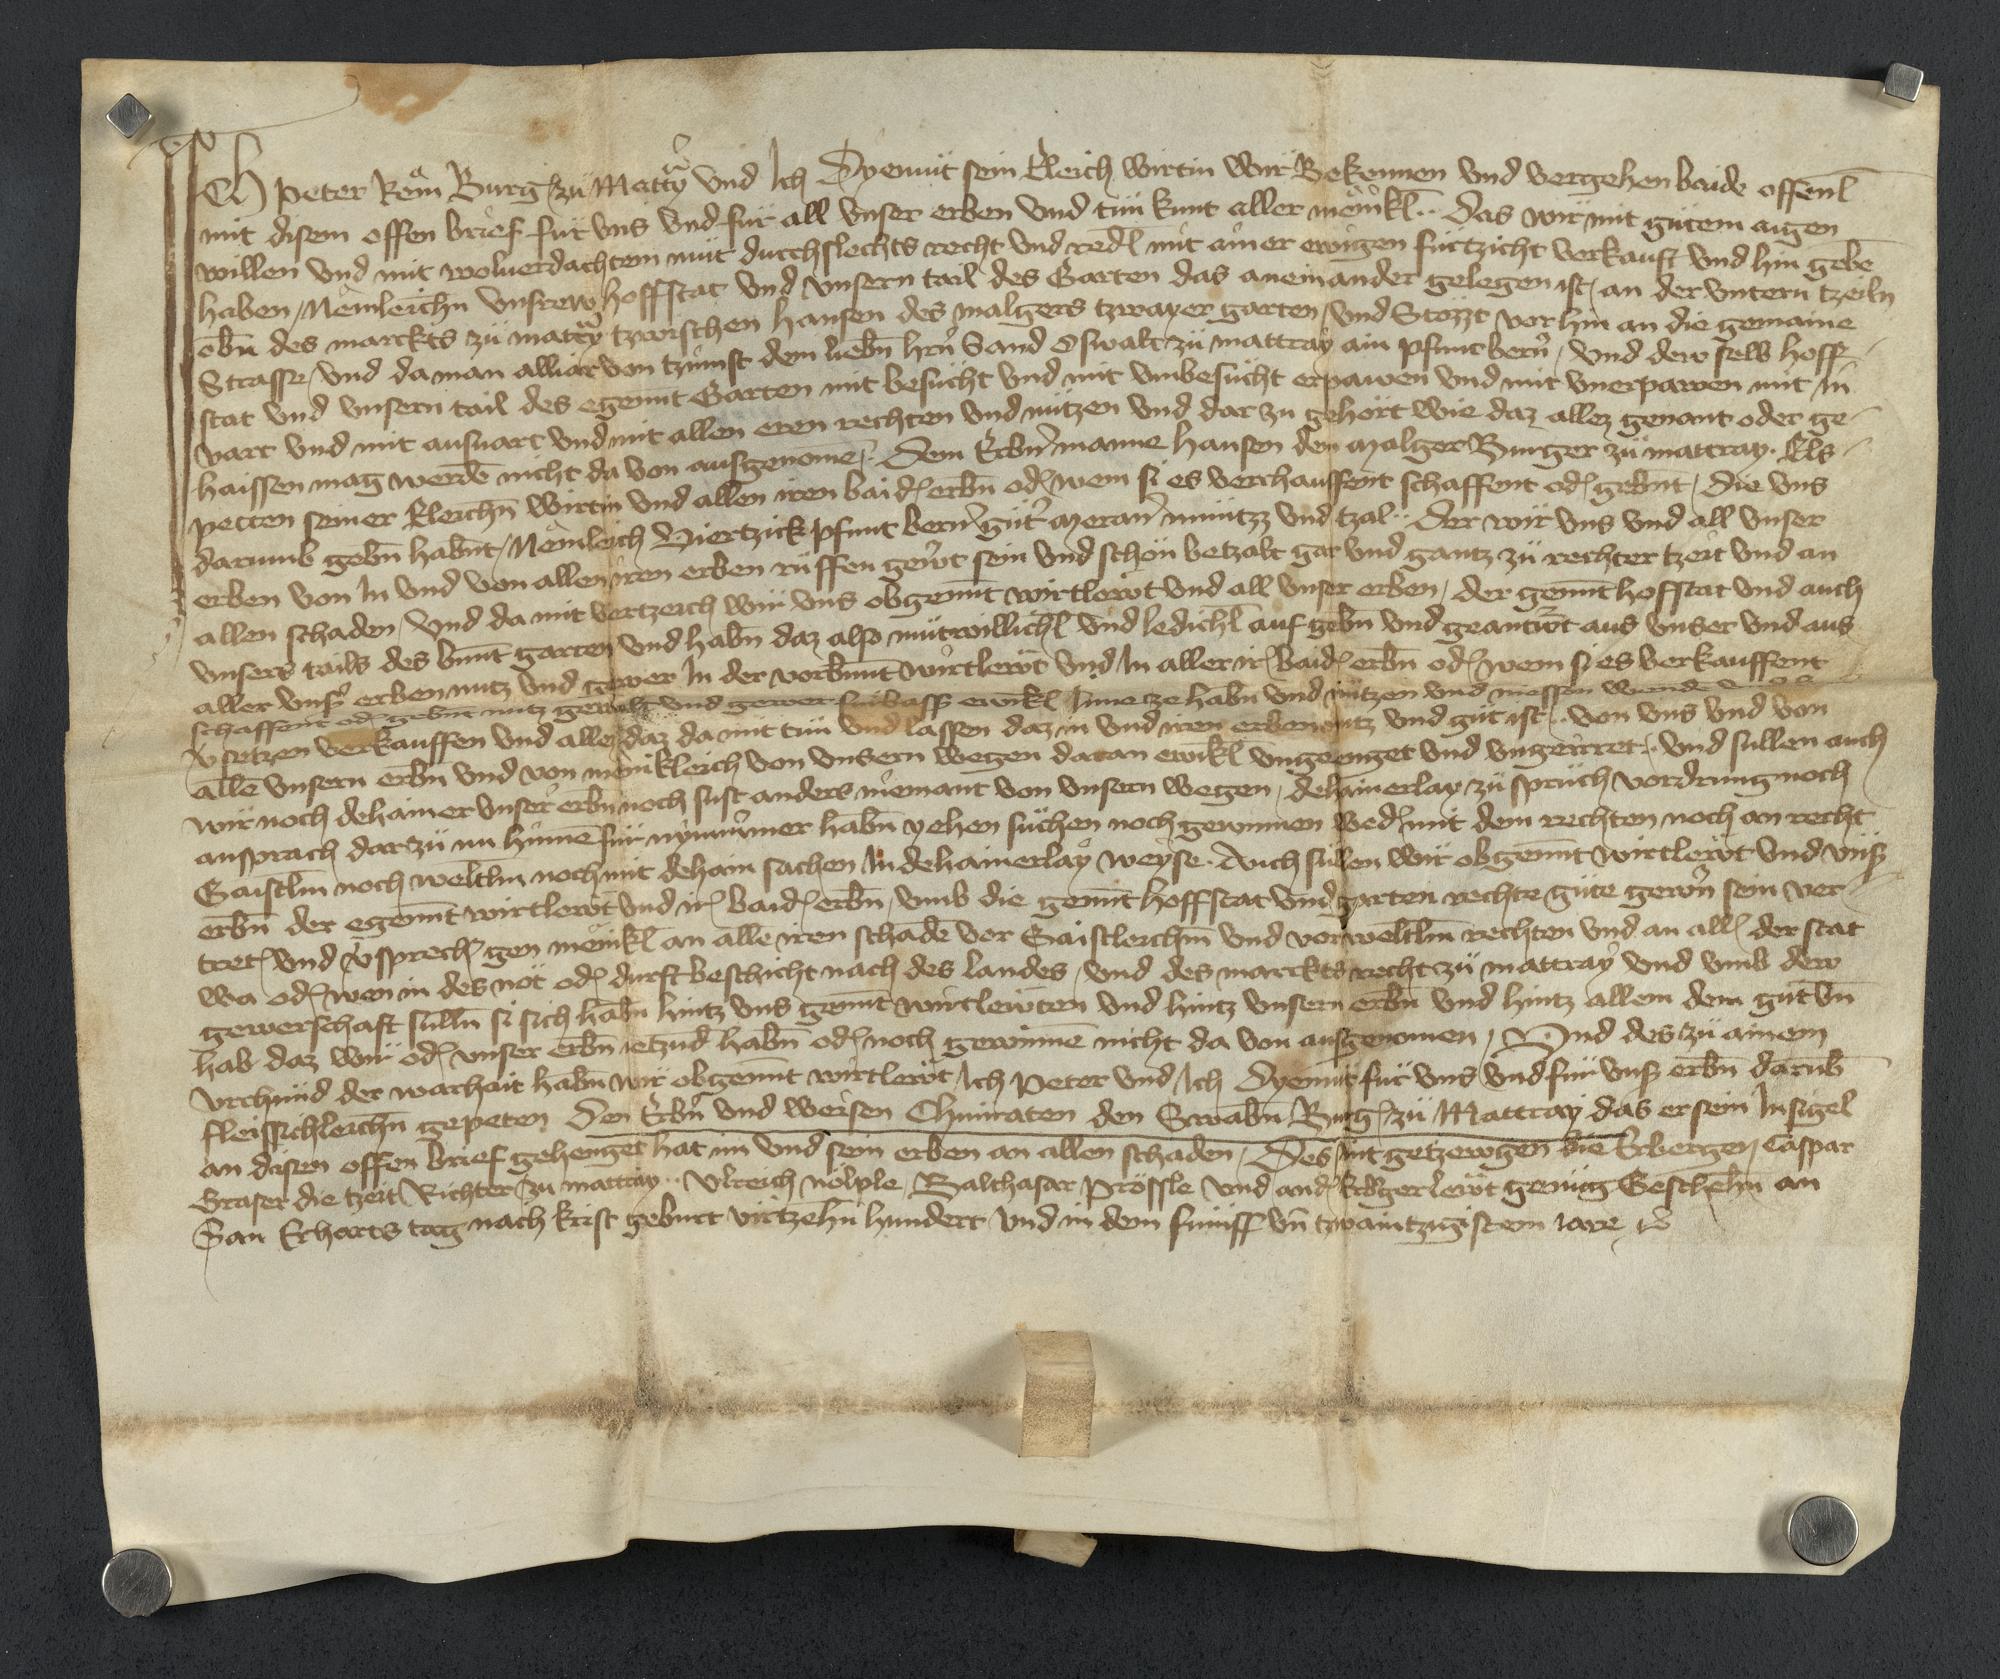 Ich peter Rem Burg zü Mattry vnd Ich Dyemüt sein Eleich wirtin wir Bekennen vnd vergehen baide offenl
mit disem offen brief für vns vnd für all vnser erben vnd tün kunt aller menikl Das wir mit gütem aigen
willen vnd mit woluerdachtem müt durchslechts recht vnd redl mit ainer ewigen fürtzicht verkauft vnd hin gebē
haben Nemleichn vnsrew hoffstat vnd vnsern tail des Garten das aneinander gelegen ist an der vntern tzeiln
obn des marckts zü mattry tzwischen hansen des malgers tzwayer garten vnd Stözzt vor hin an die gemaine
Strasse vnd da man alliar von tzünst dem liebn hrn Sand Oswalt zü mattray ain pfunt berner vnd dew selb hoff
stat vnd vnsern tail des egenant Garten mit besücht vnd mit vmbesücht erpawen vnd mit vnerpawen mit in
vart vnd mit ausuart vnd mit allen eren rechten vnd nützen vnd dar zu gehört wie daz allez genant oder ge
haissen mag werdē nicht da von ausgenomē Dem Erbn manne hansen den malger Burger zü mattray Els
petten seiner Eleichn wirtin vnd allen iren baid erbn od wem si es verchauffent schaffent od gebnt die vns
darumb gebn habnt Nemleich Viertzick pfunt berner güter meraner münizz vnd tzal Der wir vns vnd all vnser
erben von In vnd von allen iren erben rüffen gewert sein vnd schon betzalt gar vnd gantz zü rechter tzeit vnd an
allen schaden Vnd da mit vertzeich wir vns obgenant wirtlewt vnd all vnser erben der genant hofstat vnd auch
vnsers tails des bnnt garten vnd habn daz also mütwillichl vnd ledichl auf gebn vnd geantwrt aus vnser vnd aus
aller vnser erben nutz vnd gewer In der vorbnnt wirtlewt vnd In aller ir baid erbn od wem si es verkauffent
schaffent od gebnt nutz gewalt vnd gewer fürbass ewikl Inne ze habn vnd nützen vnd niessen
v setzen verkauffen vnd alles daz da mit tün vnd lassen daz in vnd iren erben nutz vnd güt ist von vns vnd von
allē vnsern erbn vnd von menikleich von vnsern wegen daran ewikl vngeenget vnd vngeirret vnd sullen auch
wir noch dehainer vnser erbn noch sust anders niemant von vnsern wegen dehainerlay zü sprüch vordrung noch
ansprach dar zü nu hinne für nymmer habn yehen süchen noch gewinnen wed mit dem rechten noch an recht
Gaistlm noch weltlm noch mit dehain sachen In dehainerlay weyse Auch süllen wir obgenant wirtlewt vnd vns
erbn der egenant wirtlewt vnd ir baid erbn vmb die genant hoffstat vnd garten rechte güte gewern sein ver
tret vnd v sprech gen menikl an allē iren schadē vor Gaistleichm vnd vor weltlm rechten vnd an all der stat
wa od wen in des not od durft beschicht nach des landes vnd des marckts recht zü mattray vnd vmb dew
gewerschaft sulln si sich habn hintz vns genant wirtlewten vnd hintz vnsern erbn vnd hintz allem dem güt vn
hab daz wir od vnser erbn ietzūd habn od noch gewinnē nicht da von ausgenomen Vnd des zü ainem
vrchünd der warhait habn wir obgenant wirtlewt Ich Peter vnd Ich Dyemüt für vns vnd für vns erbn darūb
fleissichleichn gepeten den Erbn vnd weisen Chunraten den Swabn Burg zü Mattray das er sein Insigel
an disen offen brief gehenget hat im vnd sein erben an allen schaden Des sint getzewgen die Erbergen Caspar
Graser die tzeit Richter zu mattray Vlreich nölple Balthasar Pröffle vnd and Erberger lewt genüg Geschehn an
San Erharts tag nach krist geburt virtzehn hundert vnd in dem fuinff vn tzwaintzigistem iare